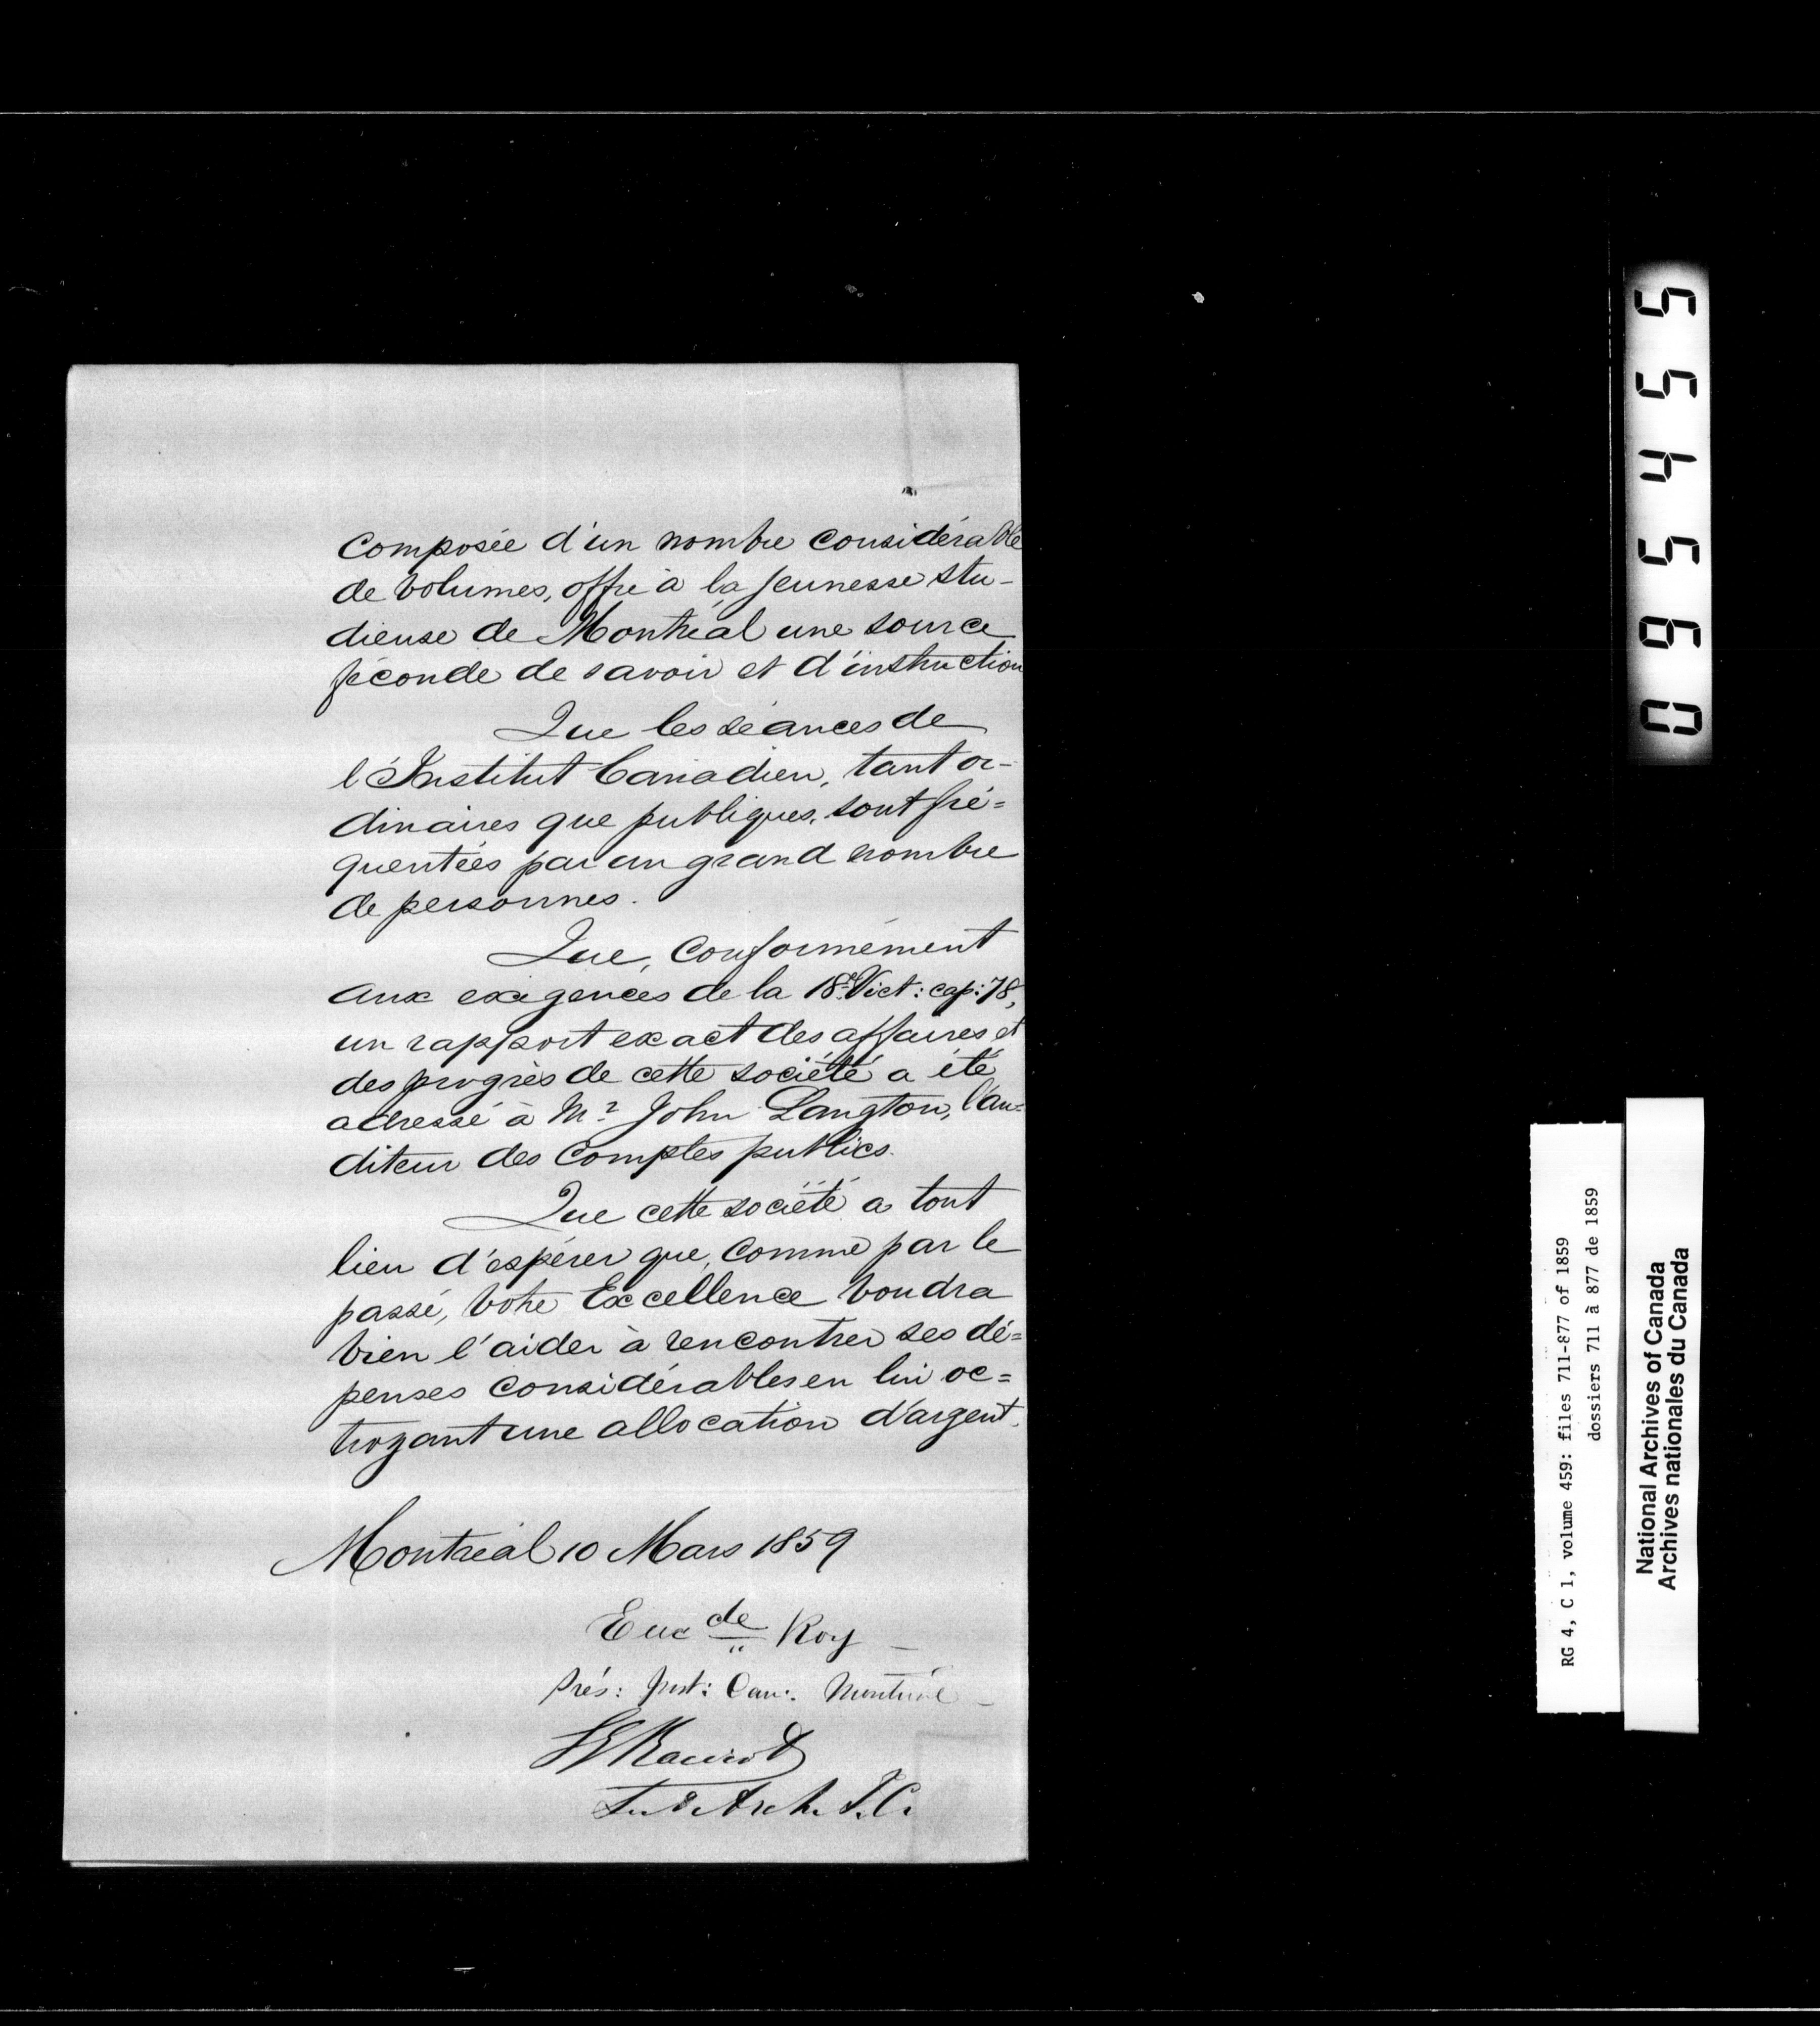 composée d'un nombre considérable
de volumes, offre à la jeunesse stu-
dieuse de Montréal une source
féconde de savoir et d'instruction
Que les séances de
l'Institut Canadien, tant or-
dinaires que publiques, sont fré=
quentées par un grand nombre
de personnes.
Que, conformément
aux exigences de la 18e Vict: cap: 78,
un rapport exact des affaires et
des progrès de cette société a été
adressé à Mr John Langton, l'au=
diteur des comptes publics.
Que cette société a tout
lieu d'espérer que, comme par le
passé, Votre Excellence voudra
bien l'aider à rencontrer ses dé=
penses considérables en lui oc=
troyant une allocation d'argent.
Montréal 10 Mars 1859
Euc de Roy
Prés: Inst: Can: Montréal
I.C.
095455
RG 4, C 1, volume 459: files 711-877 of 1859
dossiers 711 à 877 de 1859
National Archives of Canada
Archives nationales du Canada